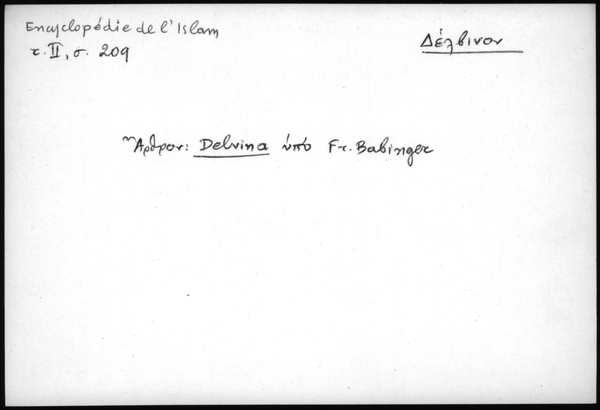 Encyclopédie de l'Islam
τ. II, σ. 209
Δέλβινον
Ἄρθρον: Delvina ὑπό Fr. Babinger